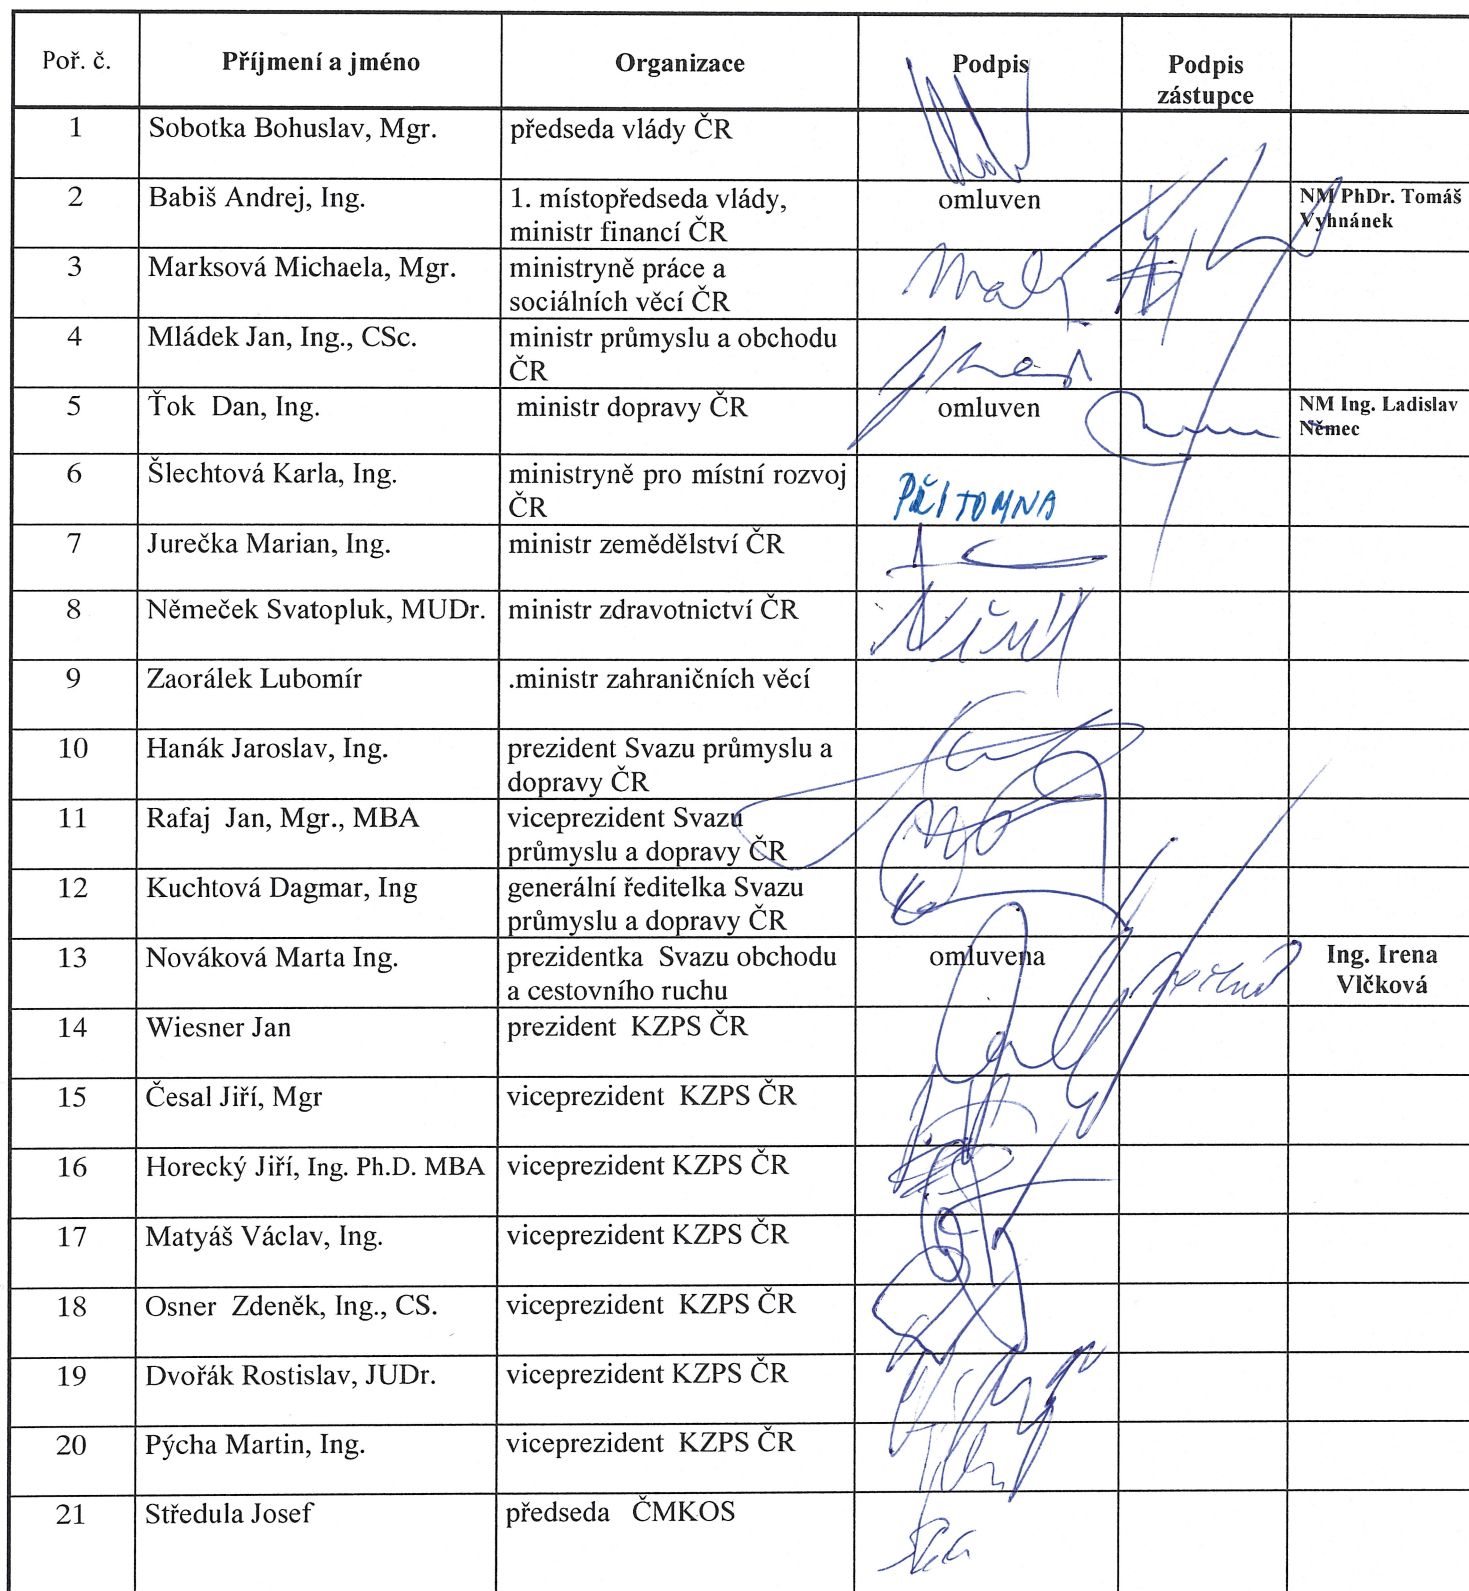 Poř. č. Příjmení a jméno Organizace Podpis Podpis
zástupce
1 Sobotka Bohuslav, Mgr. předseda vlády ČR
2 Babiš Andrej, Ing. 1. místopředseda vlády, omluven NM PhDr. Tomáš
ministr financí ČR Vyhnánek
3 Marksová Michaela, Mgr. ministryně práce a
sociálních věcí ČR
4 Mládek Jan, Ing., CSc. ministr průmyslu a obchodu
ČR
5 Ťok Dan, Ing. ministr dopravy ČR omluven NM Ing. Ladislav
Němec
6 Šlechtová Karla, Ing. ministryně pro místní rozvoj
ČR PŘÍTOMNA
7 Jurečka Marian, Ing. ministr zemědělství ČR
8 Němeček Svatopluk, MUDr. ministr zdravotnictví ČR
9 Zaorálek Lubomír .ministr zahraničních věcí
10 Hanák Jaroslav, Ing. prezident Svazu průmyslu a
dopravy ČR
11 Rafaj Jan, Mgr., MBA viceprezident Svazu
průmyslu a dopravy ČR
12 Kuchtová Dagmar, Ing generální ředitelka Svazu
průmyslu a dopravy ČR
13 Nováková Marta Ing. prezidentka Svazu obchodu omluvena Ing. Irena
a cestovního ruchu Vlčková
14 Wiesner Jan prezident KZPS ČR
15 Česal Jiří, Mgr viceprezident KZPS ČR
16 Horecký Jiří, Ing. Ph.D. MBA viceprezident KZPS ČR
17 Matyáš Václav, Ing. viceprezident KZPS ČR
18 Osner Zdeněk, Ing., CS. viceprezident KZPS ČR
19 Dvořák Rostislav, JUDr. viceprezident KZPS ČR
20 Pýcha Martin, Ing. viceprezident KZPS ČR
21 Středula Josef předseda ČMKOS